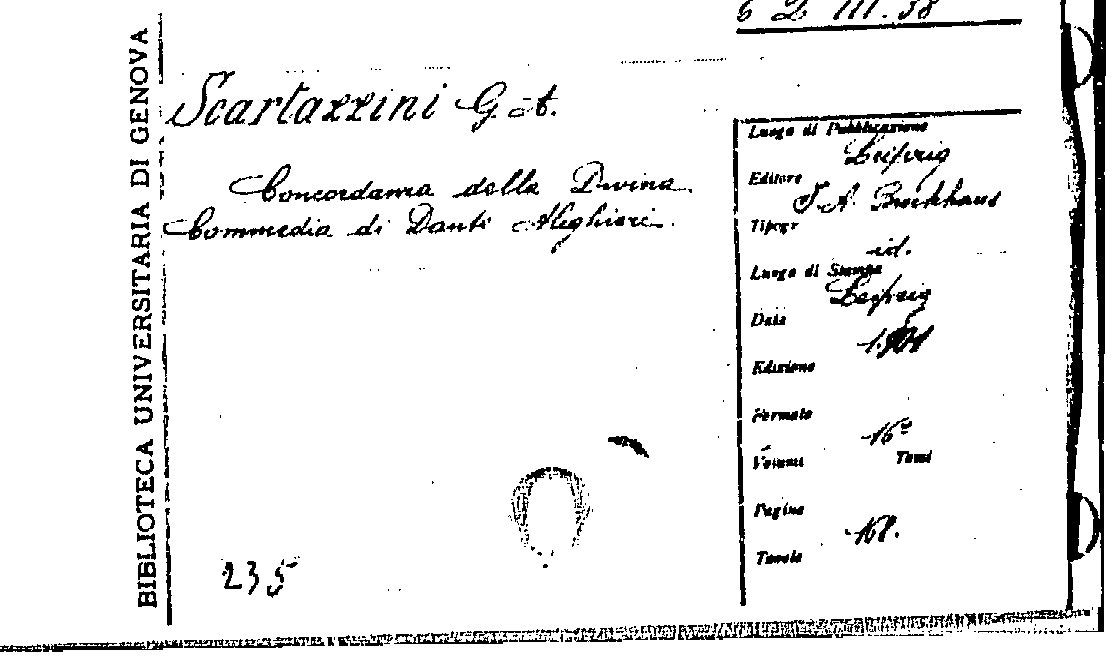 6 L III. 38
BIBLIOTECA UNIVERSITARIA DI GENOVA
Scartazzini G. A.
Concordanza della Divina
Commedia di Dante Alighieri.
235
Luogo di Pubblicazione
Leipzig
Editore
F. A. Brockhaus
Tipogr
id.
Luogo di Stampa
Leipzig
Data
1901
Edizione
Formato
16º
Volumi Tomi
Pagine
168.
Tavole